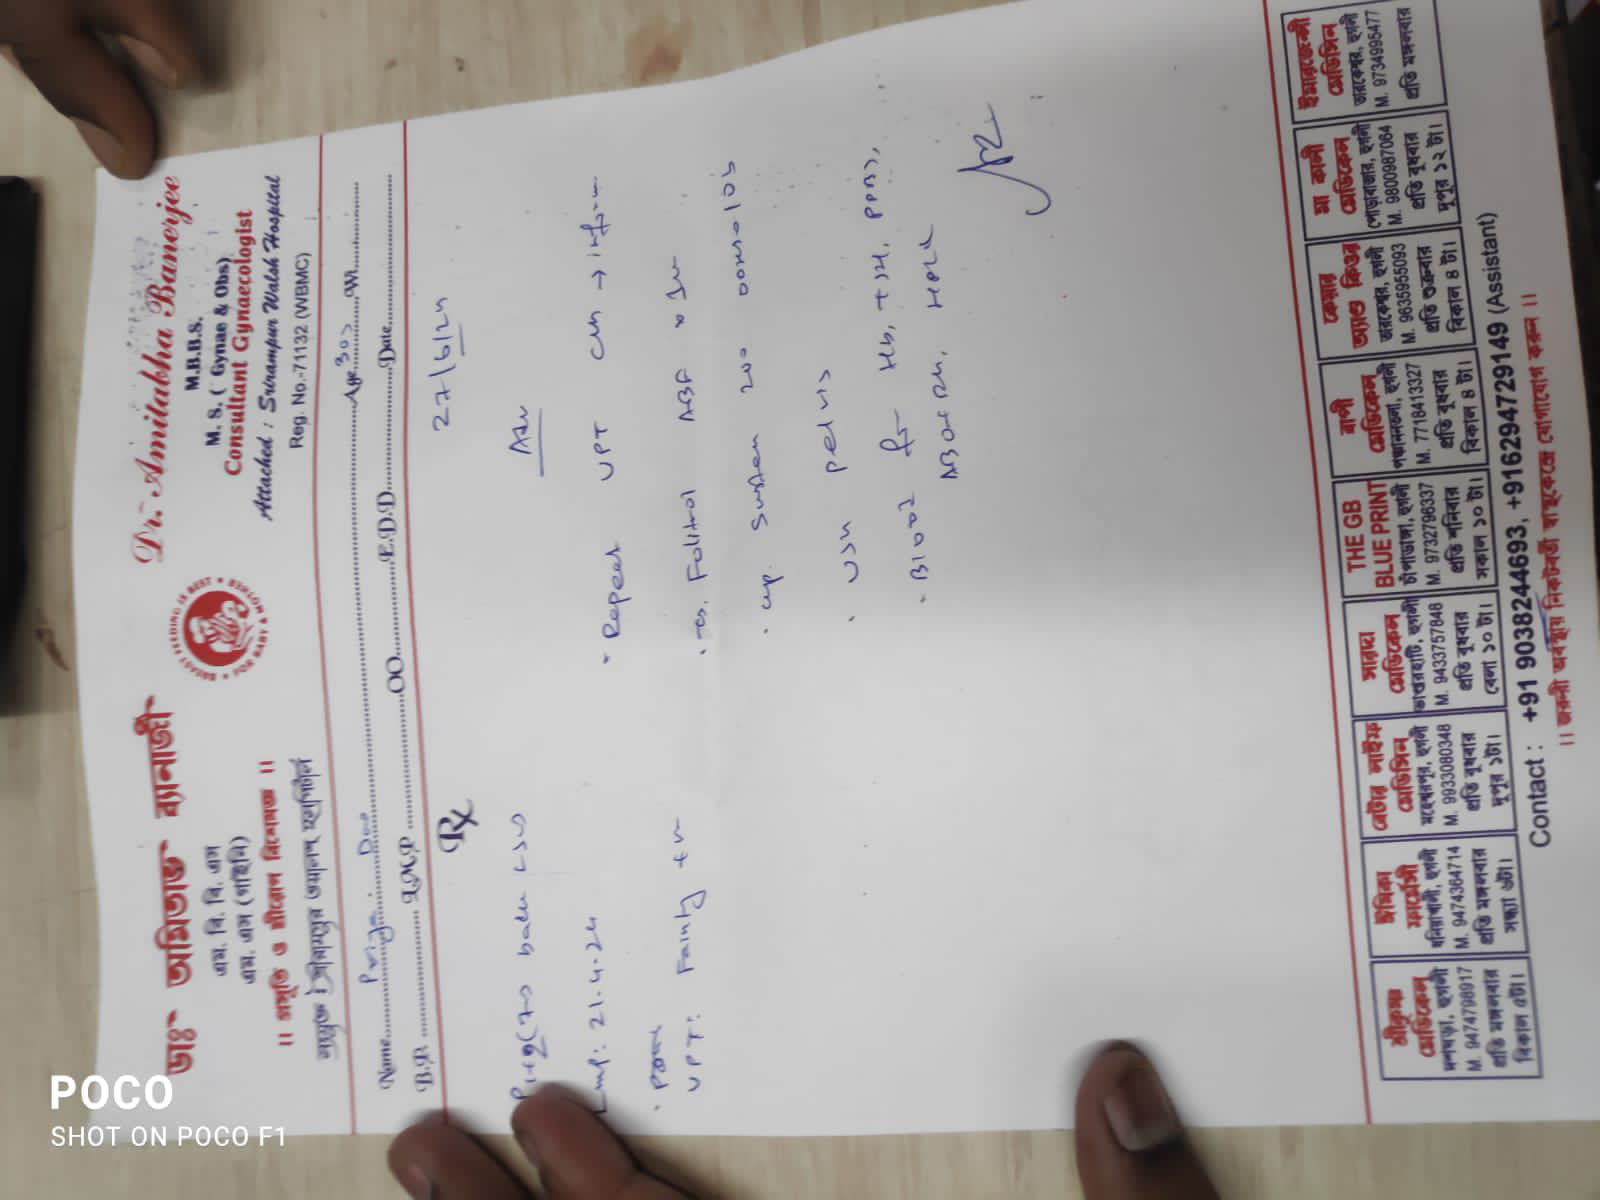 ডাঃ অমিতাভ ব্যানার্জী
এম. বি. বি. এস
এম. এস (গাইনি)
।। প্রসূতি ও স্ত্রীরোগ বিশেষজ্ঞ ।।
BREAST FEEDING IS BEST
FOR BABY
Dr. Amitabha Banerjee
M.B.B.S.
M. S. ( Gynae & Obs)
Consultant Gynaecologist
Attached : Srirampur Walsh Hospital
Reg. No.-71132 (WBMC)
Name Priya Das Age 30 Wt.
B.P. L.M.P OO E.D.D Date
Rx
27/6/24
Adv
LMP: 21.4.24
UPT: Fainty +ve
Repeat UPT
Folitral
Susten 200
USG pelvis
Blood for Hb, TSH, PPBS,
HPLC
শ্রীকৃষ্ণ
মেডিকেল
দশঘড়া, হুগলী
M. 9474798917
প্রতি মঙ্গলবার
বিকাল ৫টা।
ঈশিকা
ফার্মেসী
ধনিয়াখালী, হুগলী
M. 9474364714
প্রতি মঙ্গলবার
সন্ধ্যা ৬টা।
বেটার লাইফ
মেডিসিন
মহেশ্বরপুর, হুগলী
M. 9933080348
প্রতি বুধবার
দুপুর ১টা।
সারদা
মেডিকেল
হুগলী
M. 9433757848
প্রতি বুধবার
বেলা ১০ টা।
THE GB
BLUE PRINT
চাঁপাডাঙ্গা, হুগলী
M. 9732796337
প্রতি শনিবার
সকাল ১০ টা।
বাণী
মেডিকেল
হুগলী
M. 7718413327
প্রতি বুধবার
বিকাল ৪ টা।
কেয়ার
অ্যান্ড কিওর
তারকেশ্বর, হুগলী
M. 9635955093
প্রতি শুক্রবার
বিকাল ৪ টা।
মা কালী
মেডিকেল
হুগলী
M. 9800987064
প্রতি বুধবার
দুপুর ১২ টা।
ইমারজেন্সী
মেডিসিন
তারকেশ্বর, হুগলী
M. 9734995477
প্রতি মঙ্গলবার
Contact : +91 9038244693, +916294729149 (Assistant)
।। জরুরী অবস্থায় নিকটবর্তী স্বাস্থ্যকেন্দ্রে যোগাযোগ করুন ।।
POCO
SHOT ON POCO F1